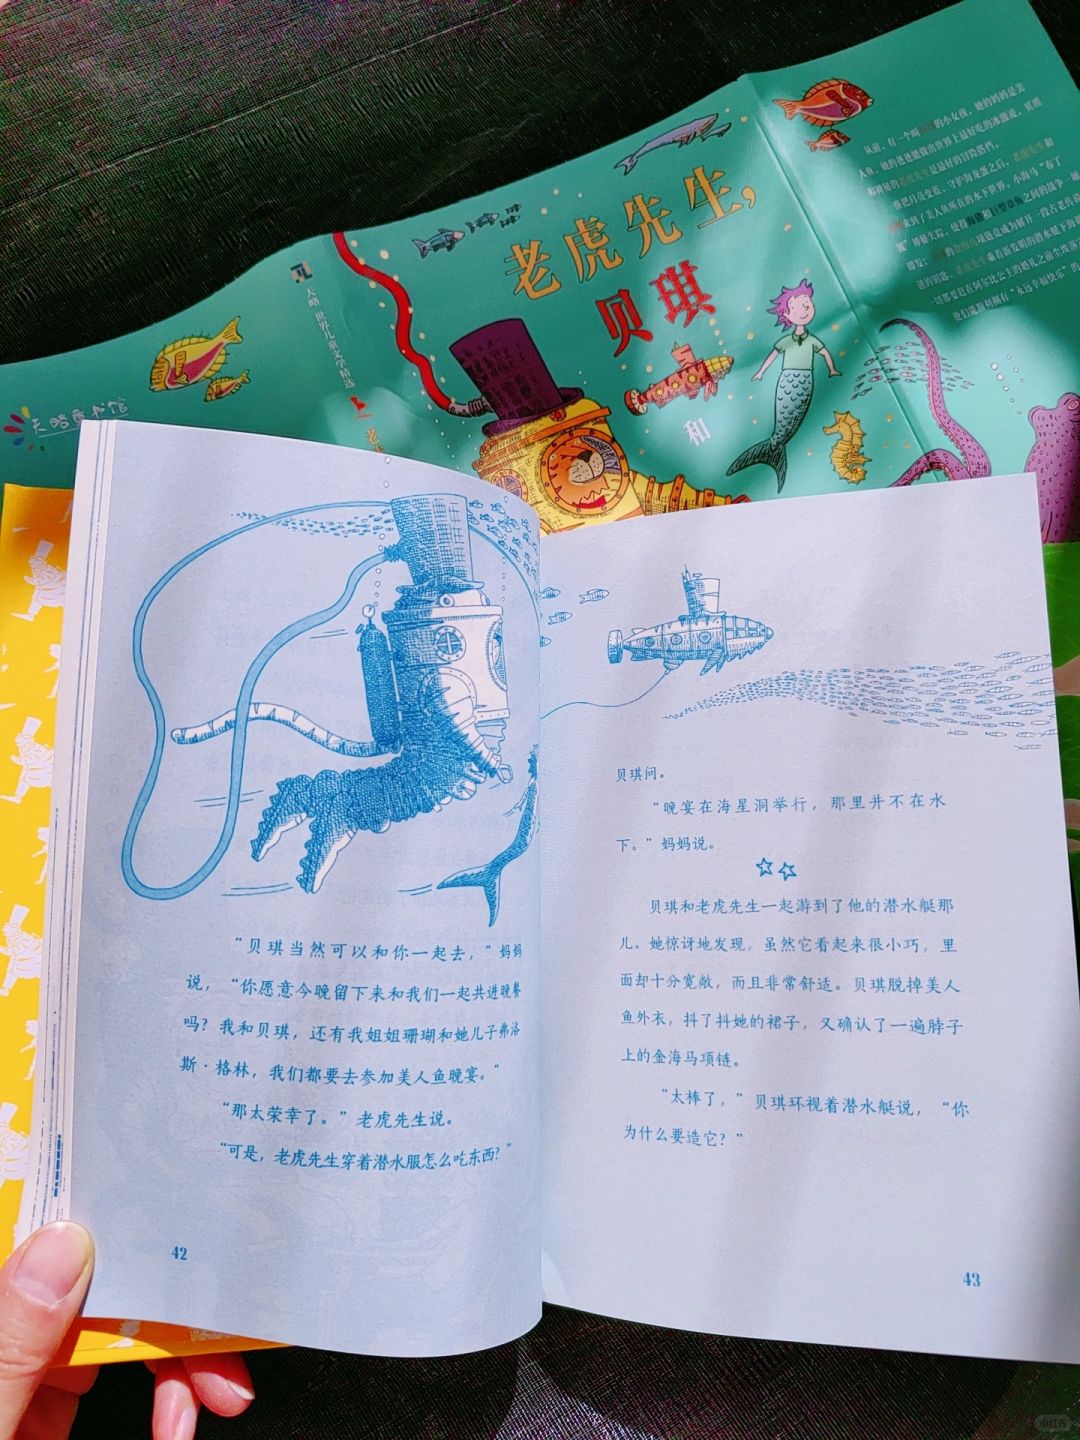 老虎先生，
贝琪
和
天略世界儿童文学精选
天略童书馆
从前，有一个叫
的小女孩，她的妈妈是美
人鱼，她的爸爸能做出世界上最好吃的冰激凌，贝琪
和神秘的老虎先生是最好的冒险搭档。
“贝琪当然可以和你一起去，”妈妈
说，“你愿意今晚留下来和我们一起共进晚餐
吗？我和贝琪，还有我姐姐珊瑚和她儿子弗洛
斯·格林，我们都要去参加美人鱼晚宴。”
“那太荣幸了。”老虎先生说。
“可是，老虎先生穿着潜水服怎么吃东西？”
42
贝琪问。
“晚宴在海星洞举行，那里并不在水
下。”妈妈说。
贝琪和老虎先生一起游到了他的潜水艇那
儿。她惊讶地发现，虽然它看起来很小巧，里
面却十分宽敞，而且非常舒适。贝琪脱掉美人
鱼外衣，抖了抖她的裙子，又确认了一遍脖子
上的金海马项链。
“太棒了，”贝琪环视着潜水艇说，“你
为什么要造它？”
43
小红书